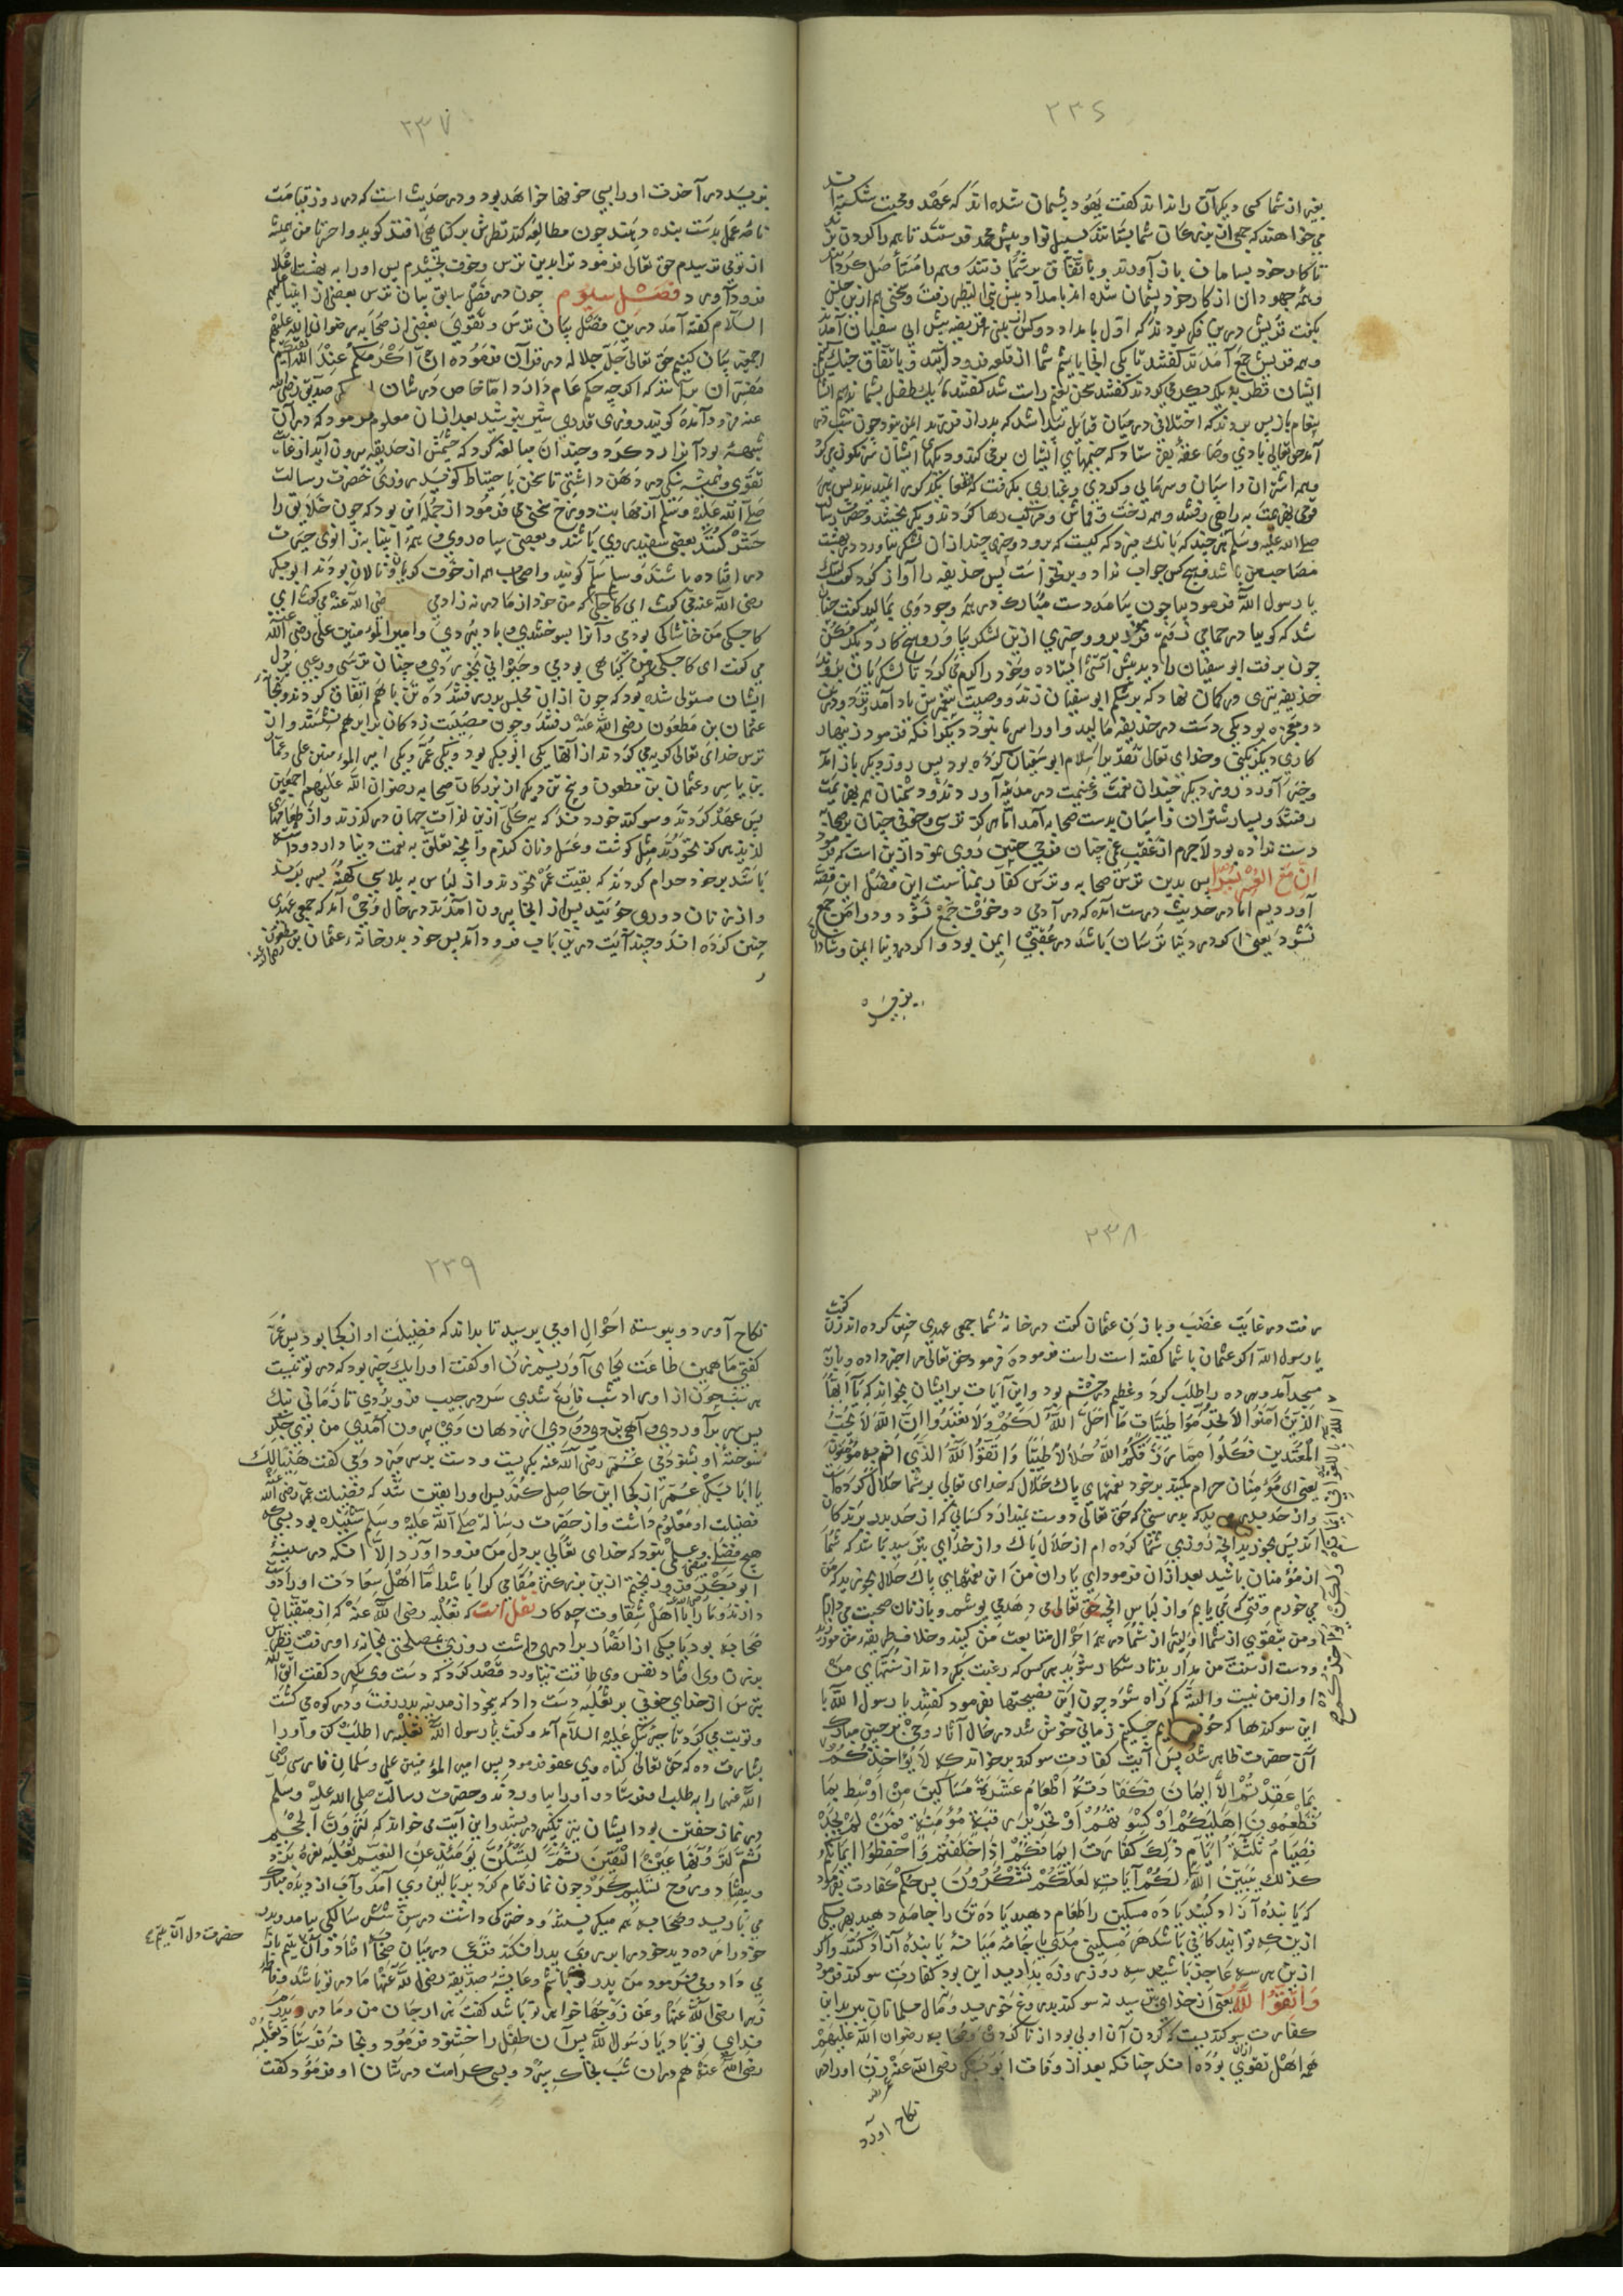 ۲۳۶
بغیر از شما کسی دیگر آن را نداند گفت یهود پشیمان شده اند که عهد و محبت شکسته اند
می خواهند که جمعی از بزرگان شما بستانند بسبیل نوا و پیش محمد فرستند تا همه را گردن زند
تا کار خود بسامان باز آورند و باتفاق بر شما زنند و همه را مستأصل گردانند
و همه جهودان از کار خود پشیمان شده اند بامداد پیش بنی النظیر رفت و سخنی هم ازین جنس
بگفت قریش درین فکر بودند که اول بامداد دو کس از بنی قریضه پیش ابی سفیان آمدند
و همه قریش جمع آمدند گفتند تا یکی اینجا باشیم شما از قلعه فرود آیید و باتفاق جنگ کنیم
ایشان نظر به یکدیگر می کردند گفتند سخن نعیم راست شد گفتند ما یک طفل بشما ندهیم ایشان
پیغام باز پس بردند که اختلافی در میان قبایل پیدا شد که پدر از فرزند ایمن نبود چون شب در
آمد حق تعالی بادی وصاعقه بفرستاد که خیمهای ایشان بر می کند و دیگهای ایشان سرنگون می کرد
و همه اشتران و اسپان
قومی بهزیمت به راهی رفتند و همه رخت و قماش و مرکب رها کردند و بگریختند و حضرت رسالت
صلی الله علیه وسلم هر چند که بانگ میزد که کیست که برود و خبری چند از آن لشکر بیاورد در بهشت
مصاحب من باشد هیچ کس جواب نداد و برنخواست پس حذیفه را آواز کرد گفت لبیک
یا رسول الله فرمود بیا چون بیامد دست مبارک در همه وجود وی بمالید گفت چنان
شد که گوییا در حمامی رفتم فرمود برو و خبری ازین لشکر بیا و هیچ کار دیگر مکن
چون برفت ابو سفیان را دید پیش آتش ایستاده و خود را گرم می کرد تا لشکریان بروند
حذیفه تیری در کمان نهاد که بر شکم ابو سفیان زند و وصیت پیغمبرش یاد آمد نزد و درین
دو معجزه بود یکی دست در حذیفه مالید و او را سرما نبود و دیگر آنکه فرمود زینهار
کاری دیگر نکنی و خدای تعالی تقدیر اسلام ابو سفیان کرده بود پس روز دیگر باز آمد
و خبر آورد و روز دیگر چندان نعمت و غنیمت در مدینه آوردند و دشمنان همه بهزیمت
رفتند و بسیار شتران و اسپان بدست صحابه آمد تا هرگز ترسی و خوفی چنان بر صحابه
دست نداده بود لاجرم از عقب غمی چنان فرحی چنین روی نمود ازین است که فرمود
ان مع العسر یسرا پس بدین ترس صحابه و ترس کفار بمناسبت این فصل این قصه
آوردیم اما در حدیث درست آمده که در آدمی دو خوف جمع نشود و دو امن جمع
نشود یعنی اگر در دنیا ترسان باشد در عقبی ایمن بود و اگر در دنیا ایمن و شادان
۲۳۷
بزید در آخرت او را بسی خوفها خواهد بود و در حدیث است که در روز قیامت
نامه عمل بدست بنده دهند چون مطالعه کند نظرش بر گناهی افتد گوید واحسرتا من همیشه
از تو می ترسیدم حق تعالی فرمود ترا بدین ترس و خوف بخشیدم پس او را به بهشت اعلا
فرود آورد فصل سیوم چون در فصل سابق بیان ترس بعضی از انبیا علیهم
السلام گفته آمد درین فصل بیان ترس و تقوی بعضی از صحابه رضوان الله علیهم
اجمعین بیان کنیم حق تعالی جل جلاله در قرآن فرموده ان اکرمکم عند الله اتقیکم
مفسران بر آنند که اگرچه حکم عام دارد اما خاص در شان صدیق رضی الله
عنه فرود آمده گویند روزی قدری شیر بنوشید بعد از آن معلوم فرمود که در آن
شبهه بود آنرا رد کرد و چندان مبالغه کرد که چشمش از حدیقه بیرون آید از غایت
تقوی و همیشه سنگی در دهن داشتی تا سخن باحتیاط گوید روزی حضرت رسالت
صلی الله علیه وسلم از مهابت دوزخ سخنی می فرمود از جمله این بود که چون خلایق را
حشر کنند بعضی سفید روی باشند و بعضی سیاه روی و همه انبیا به زانوی حیرت
در افتاده باشند و سلم سلم گویند و اصحاب همه از خوف گریان و نالان بودند ابوبکر
رضی الله عنه می گفت ای کاجکی که من خود از مادر نه زادمی رضی الله عنه می گفت ای
کاجکی من خاشاکی بودی و آنرا بسوختندی و باد ببردی و امیر المؤمنین علی رضی الله عنه
می گفت ای کاجکی من گیاهی بودی و حیوانی بخوردی و چنان ترسی و رعبی بر دل
ایشان مستولی شده بود که چون از آن مجلس بدر رفتند ده تن با هم اتفاق کردند و بخانه
عثمان بن مظعون رضی الله عنه رفتند و چون مصیبت زدگان برابر هم نشستند و از
ترس خدای تعالی گریه می کردند از آنها یکی ابوبکر بود و یکی عمر و یکی امیر المؤمنین علی و عمار
بن یاسر و عثمان بن مظعون و پنج تن دیگر از بزرگان صحابه رضوان الله علیهم اجمعین
پس عهد کردند و سوگند خوردند که به کلی ازین لذات جهان در گذرند و از طعامهای
لذیذ هرگز نخورند مثل گوشت و عسل و نان گندم و آنچه تعلق به نعمت دنیا دارد و داشته
باشد بر خود حرام کردند که بقیت عمر نخورند و از لباس به پلاسی کهنه بسر برند
و از زنان دوری جویند پس از آنجا بیرون آمدند در حال وحی آمد که جمعی عهدی
چنین کرده اند و چند آیت درین باب فرود آمد پس خود بدر خانه عثمان بن مظعون رضی الله عنه
۲۳۸
رفت در غایت غضب و با زن عثمان گفت در خانه شما جمعی عهدی چنین کرده اند زن گفت
یا رسول الله اگر عثمان با شما گفته است راست فرموده فرمود حق تعالی مرا خبر داده و باز به
مسجد آمد و هر ده را طلب کرد و عظیم در خشم بود و این آیات بر ایشان بخواند که یا ایها
الذین آمنوا لا تحرموا طیبات ما احل الله لکم ولا تعتدوا ان الله لا یحب
المعتدین فکلوا مما رزقکم الله حلالا طیبا واتقوا الله الذی انتم به مؤمنون
یعنی ای مؤمنان حرام مکنید بر خود نعمتهای پاک حلال که خدای تعالی بر شما حلال کرده است
و از حد مبرید که بدرستی که حق تعالی دوست ندارد کسانی که از حد بدر برندگان
اند پس بخورید آنچه روزی شما کرده ام از حلال پاک و از خدای بترسید بآنکه شما
از مؤمنان باشید بعد از آن فرمود ای یاران من این نعمتهای پاک حلال بخورید که من
می خورم وقتی که می یابم و از لباس آنچه حق تعالی می دهد می پوشم و با زنان صحبت می دارم
و من بتقوی از شما اولیتر از شما در همه احوال متابعت من کنید و خلاف طریقه من مورزید
و دست از سنت من مدارید تا رستگار شوید هر کس که رغبت بگرداند از سنتهای من
او از من نیست و البته گم راه شود چون این نصیحتها بفرمود گفتند یا رسول الله با
این سوگندها که خورده ایم چکنیم زمانی خوش شد در حال آثار وحی بر جبین مبارک
آن حضرت ظاهر شد پس آیت کفارت سوگند بر خواند که لا یؤاخذکم
بما عقدتم الایمان فکفارته اطعام عشرة مساکین من اوسط ما
تطعمون اهلیکم او کسوتهم او تحریر رقبة مؤمنة فمن لم یجد
فصیام ثلثة ایام ذلک کفارت ایمانکم اذا حلفتم واحفظوا ایمانکم
کذلک یبین الله لکم آیاته لعلکم تشکرون پس حکم کفارت بفرمود
که یا بنده آزاد کنید یا ده مسکین را طعام دهید یا ده تن را جامه دهید هر یکی
ازین که توانید کافی باشد هر مسکینی مدی یا جامه میانه یا بنده آزاد کنند و اگر
ازین هر سه عاجز باشید سه روز روزه بدارید این بود کفارت سوگند فرمود
واتقوا الله یعنی از خدای بترسید نه سوگند بدروغ خورید و مال مسلمانان ببرید این
کفارت سوگند نیست که کردن آن اولی بود از نا کردن و صحابه رضوان الله علیهم
همه اهل تقوی بوده اند چنانکه بعد از وفات ابوبکر رضی الله عنه زن او را
نکاح آورد
۲۳۹
نکاح آورد و پیوسته احوال او می پرسید تا بداند که فضیلت او از کجا بود پس عمر
گفتی ما همین طاعت بجای آوریم زن او گفت او را یک چیز بود که در تو نیست
هر شب چون از اوراد شب فارغ شدی سر در جیب فرو بردی تا زمانی نیک
پس سر بر آوردی و آهی بزدی و دودی از دهان وی بیرون آمدی من بوی جگر
سوخته او بشنودمی عمر رضی الله عنه بگریست و دست بر سر میزد و می گفت هنیئا لک
یا ابا بکر عمر از کجا این حاصل کند پس او را یقین شد که فضیلت عمر رضی الله عنه
فضیلت او معلوم داشت و از حضرت رسالة صلی الله علیه وسلم شنیده بود که
هیچ فضل و علمی نبود که خدای تعالی بر دل من فرود آورد الا آنکه در سینه
ابوبکر فرو ریختم ازین بزرگتر مقامی کرا باشد اما اهل سعادت او را دوست
دارند و ما را با اهل شقاوت چه کار نقل است که ثعلبه رضی الله عنه که از متقیان
صحابه بود با یکی از انصار برادری داشت روزی بمصلحتی بخانه او رفت نظرش
بر زن وی افتاد نفس وی طاقت نیاورد قصد کرد که دست وی بگیرد گفت اتق الله
بترس از خدای خوفی بر ثعلبه دست داد که بیخود از مدینه بدر رفت و در کوه می گشت
و توبت می کرد تا جبرئیل علیه السلام آمد و گفت یا رسول الله ثعلبه را طلب کن و او را
بشارت ده که حق تعالی گناه وی عفو فرمود پس امیر المؤمنین علی و سلمان فارسی رضی
الله عنهما را به طلب او فرستاد و او را بیاوردند و حضرت رسالت صلی الله علیه وسلم
در نماز خفتن بود ایشان نیز تکبیر در بستند و این آیت می خواند که لترون الجحیم
ثم لترونها عین الیقین ثم لتسئلن یومئذ عن النعیم ثعلبه نعره بزد
و بیفتاد و روح تسلیم کرد چون نماز تمام کرد بر بالین وی آمد و آب از دیده مبارک
می بارید و صحابه هم میگریستند و دخترکی داشت در سن شش سالگی بیامد و پدر
خود را مرده دید خود را بر روی پدر افکند فزعی در میان صحابه افتاد و آن یتیم
می داد و می فرمود من پدر تو باشم و عایشه صدیقه رضی الله عنها مادر تو باشد و فاطمه
زهرا رضی الله عنها وعن زوجها خواهر تو باشد گفت هزار جان من و مادر و پدر
فدای تو باد یا رسول الله پس آن طفل را خشنود فرمود و بخانه فرستاد و ثعلبه
رضی الله عنه هم در آن شب بخاک سپرد و بسی کرامت در شان او فرمود گفت